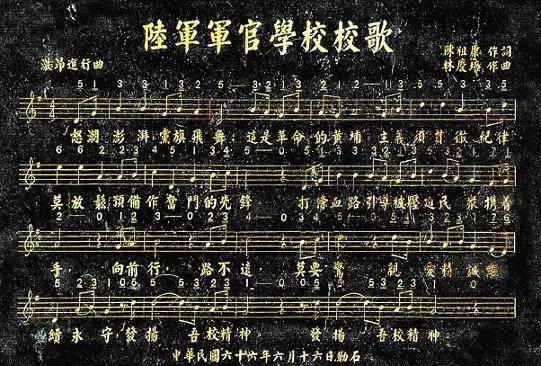 陸軍軍官學校校歌
陳祖康 作詞
林慶培 作曲
激昂進行曲
怒潮澎湃，黨旗飛舞；這是革命的黃埔 主義須貫徹 紀律
莫放鬆 預備作奮鬥的先鋒 打條血路 引導被壓迫民 眾 携着
手， 向前行， 路不遠， 莫要驚， 親 愛精 誠 繼
續永守，發揚 吾校精神， 發揚 吾校精神
中華民國六十六年六月十六日勒石